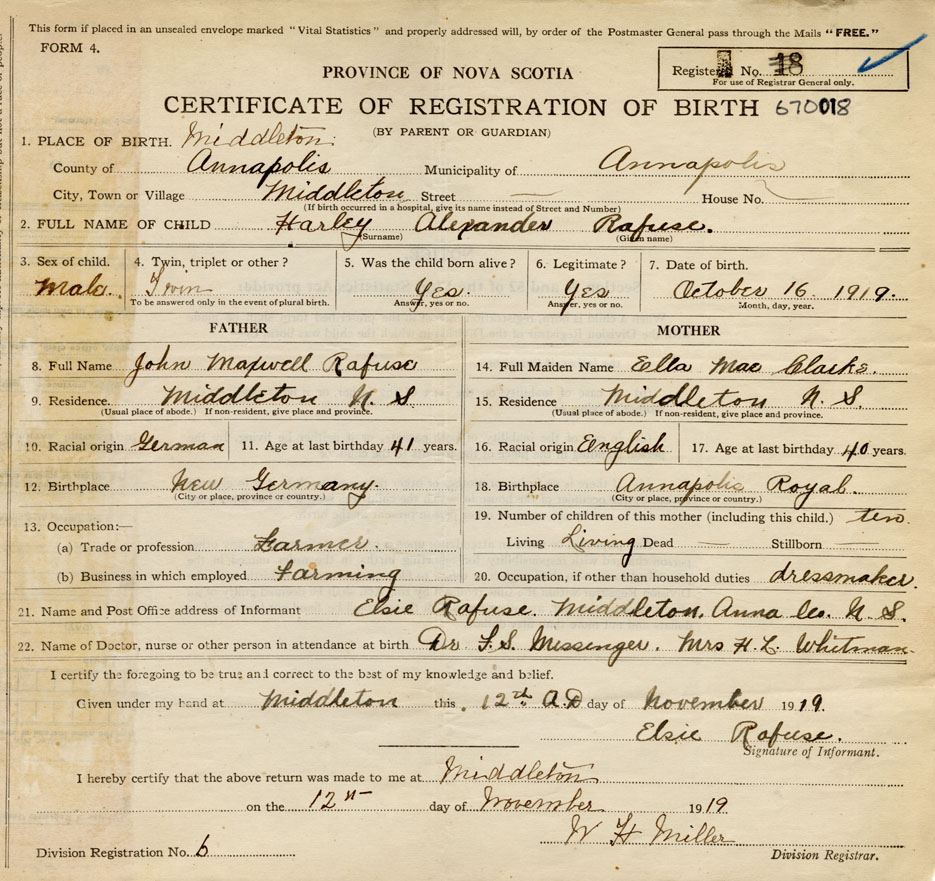 This form if placed in an unsealed envelope marked "Vital Statistics" and properly addressed will, by order of the Postmaster General pass through the Mails "FREE."
FORM 4.
PROVINCE OF NOVA SCOTIA
Registered No. 18
For use of Registrar General only.
CERTIFICATE OF REGISTRATION OF BIRTH 670018
(BY PARENT OR GUARDIAN)
1. PLACE OF BIRTH. Middleton
County of Annapolis Municipality of Annapolis
City, Town or Village Middleton Street — House No.
(If birth occurred in a hospital, give its name instead of Street and Number)
2. FULL NAME OF CHILD Harley Alexander Rafuse.
(Surname) (Given name)
3. Sex of child. 4. Twin, triplet or other? 5. Was the child born alive? 6. Legitimate? 7. Date of birth.
Male. Twin Yes. Yes October 16 1919.
To be answered only in the event of plural birth. Answer, yes or no. Answer, yes or no. Month, day, year.
FATHER
8. Full Name John Maxwell Rafuse
9. Residence. Middleton N. S.
(Usual place of abode.) If non-resident, give place and province.
10. Racial origin German 11. Age at last birthday 41 years.
12. Birthplace New Germany.
(City or place, province or country.)
13. Occupation:—
(a) Trade or profession Farmer.
(b) Business in which employed farming
MOTHER
14. Full Maiden Name Ella Mae Clarke.
15. Residence Middleton N. S.
(Usual place of abode.) If non-resident, give place and province.
16. Racial origin English 17. Age at last birthday 40 years.
18. Birthplace Annapolis Royal.
(City or place, province or country.)
19. Number of children of this mother (including this child.) ten.
Living Living Dead — Stillborn —
20. Occupation, if other than household duties dressmaker.
21. Name and Post Office address of Informant Elsie Rafuse. Middleton. Anna Co. N. S.
22. Name of Doctor, nurse or other person in attendance at birth Dr F. S. Messenger. Mrs H. L. Whitman
I certify the foregoing to be true and correct to the best of my knowledge and belief.
Given under my hand at Middleton this 12th A.D day of November 1919.
Elsie Rafuse.
Signature of Informant.
I hereby certify that the above return was made to me at Middleton
on the 12th day of November 1919
W H Miller
Division Registration No. 6
Division Registrar.